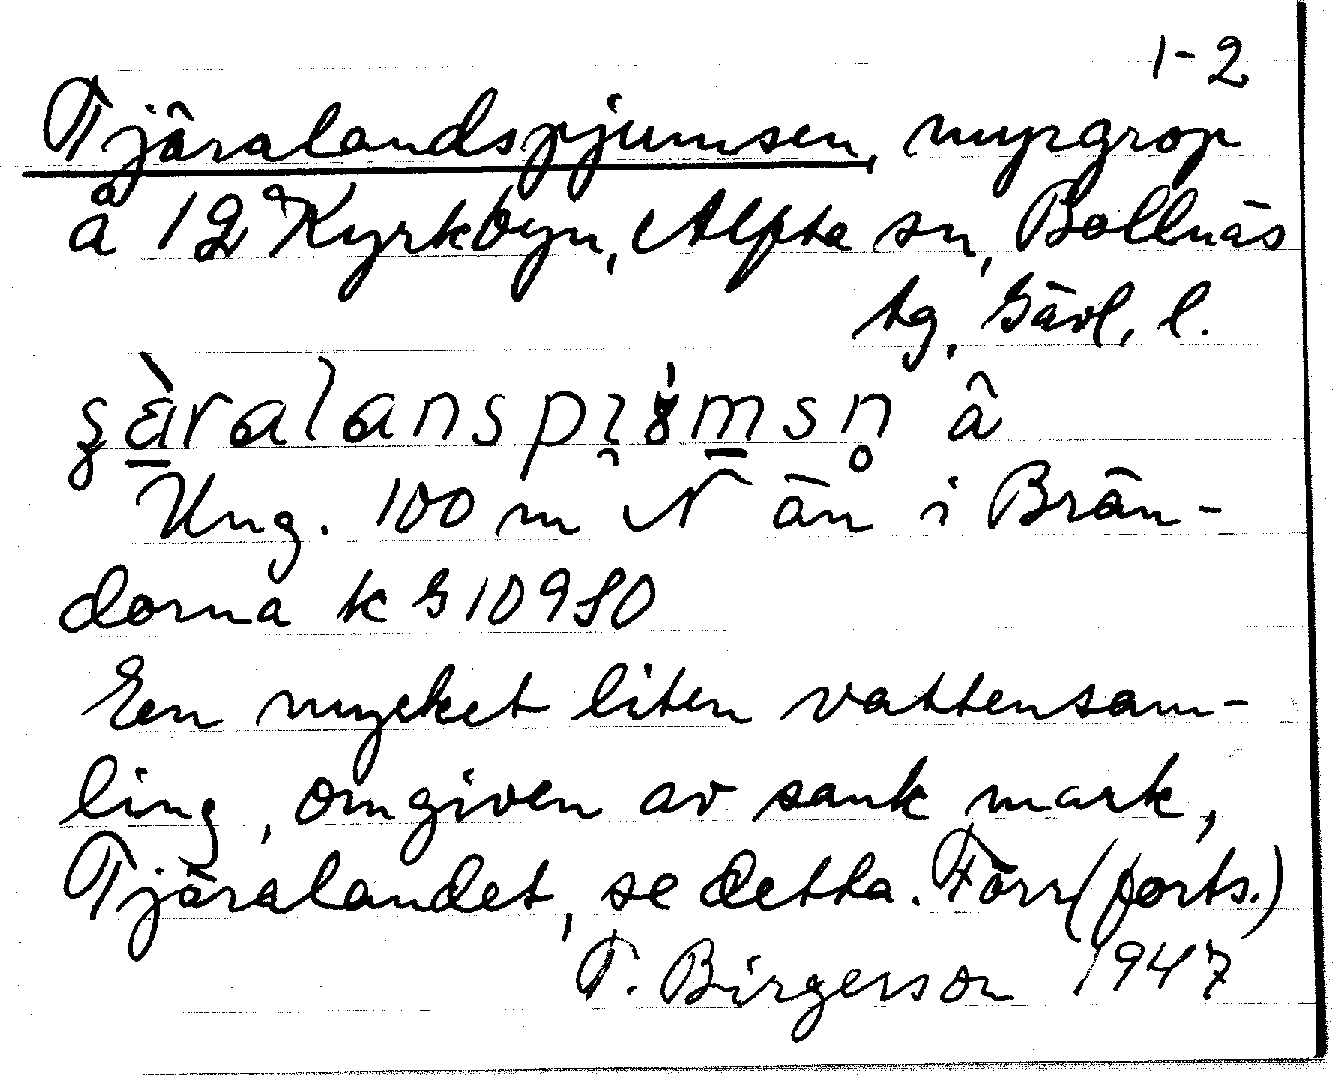 1-2
Tjäralandspjumsen, myrgrop
å 12 Kyrkbyn, Alfta sn, Bollnäs
tg, Gävl. l.
Ung. 100 m N än i Brän-
dorna k G 10980
Een mycket liten vattensam-
ling, omgiven av sank mark,
Tjäralandet, se detta. Förr (forts.)
T. Birgerson 1947